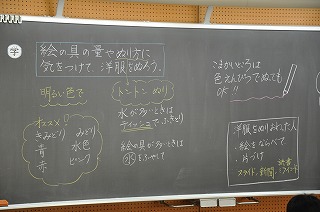 学
絵の具の量やぬり方に
気をつけて、洋服をぬろう。
明るい色で
オススメ!
きみどり みどり
青 水色
赤 ピンク
トントン ぬり
水が多いときは
ティッシュでふきとり
絵の具が多いときは
水をふやして
こまかいところは
色えんぴつでぬっても
OK!!
洋服をぬりおわった人
・絵をならべて
・片づけ
読書